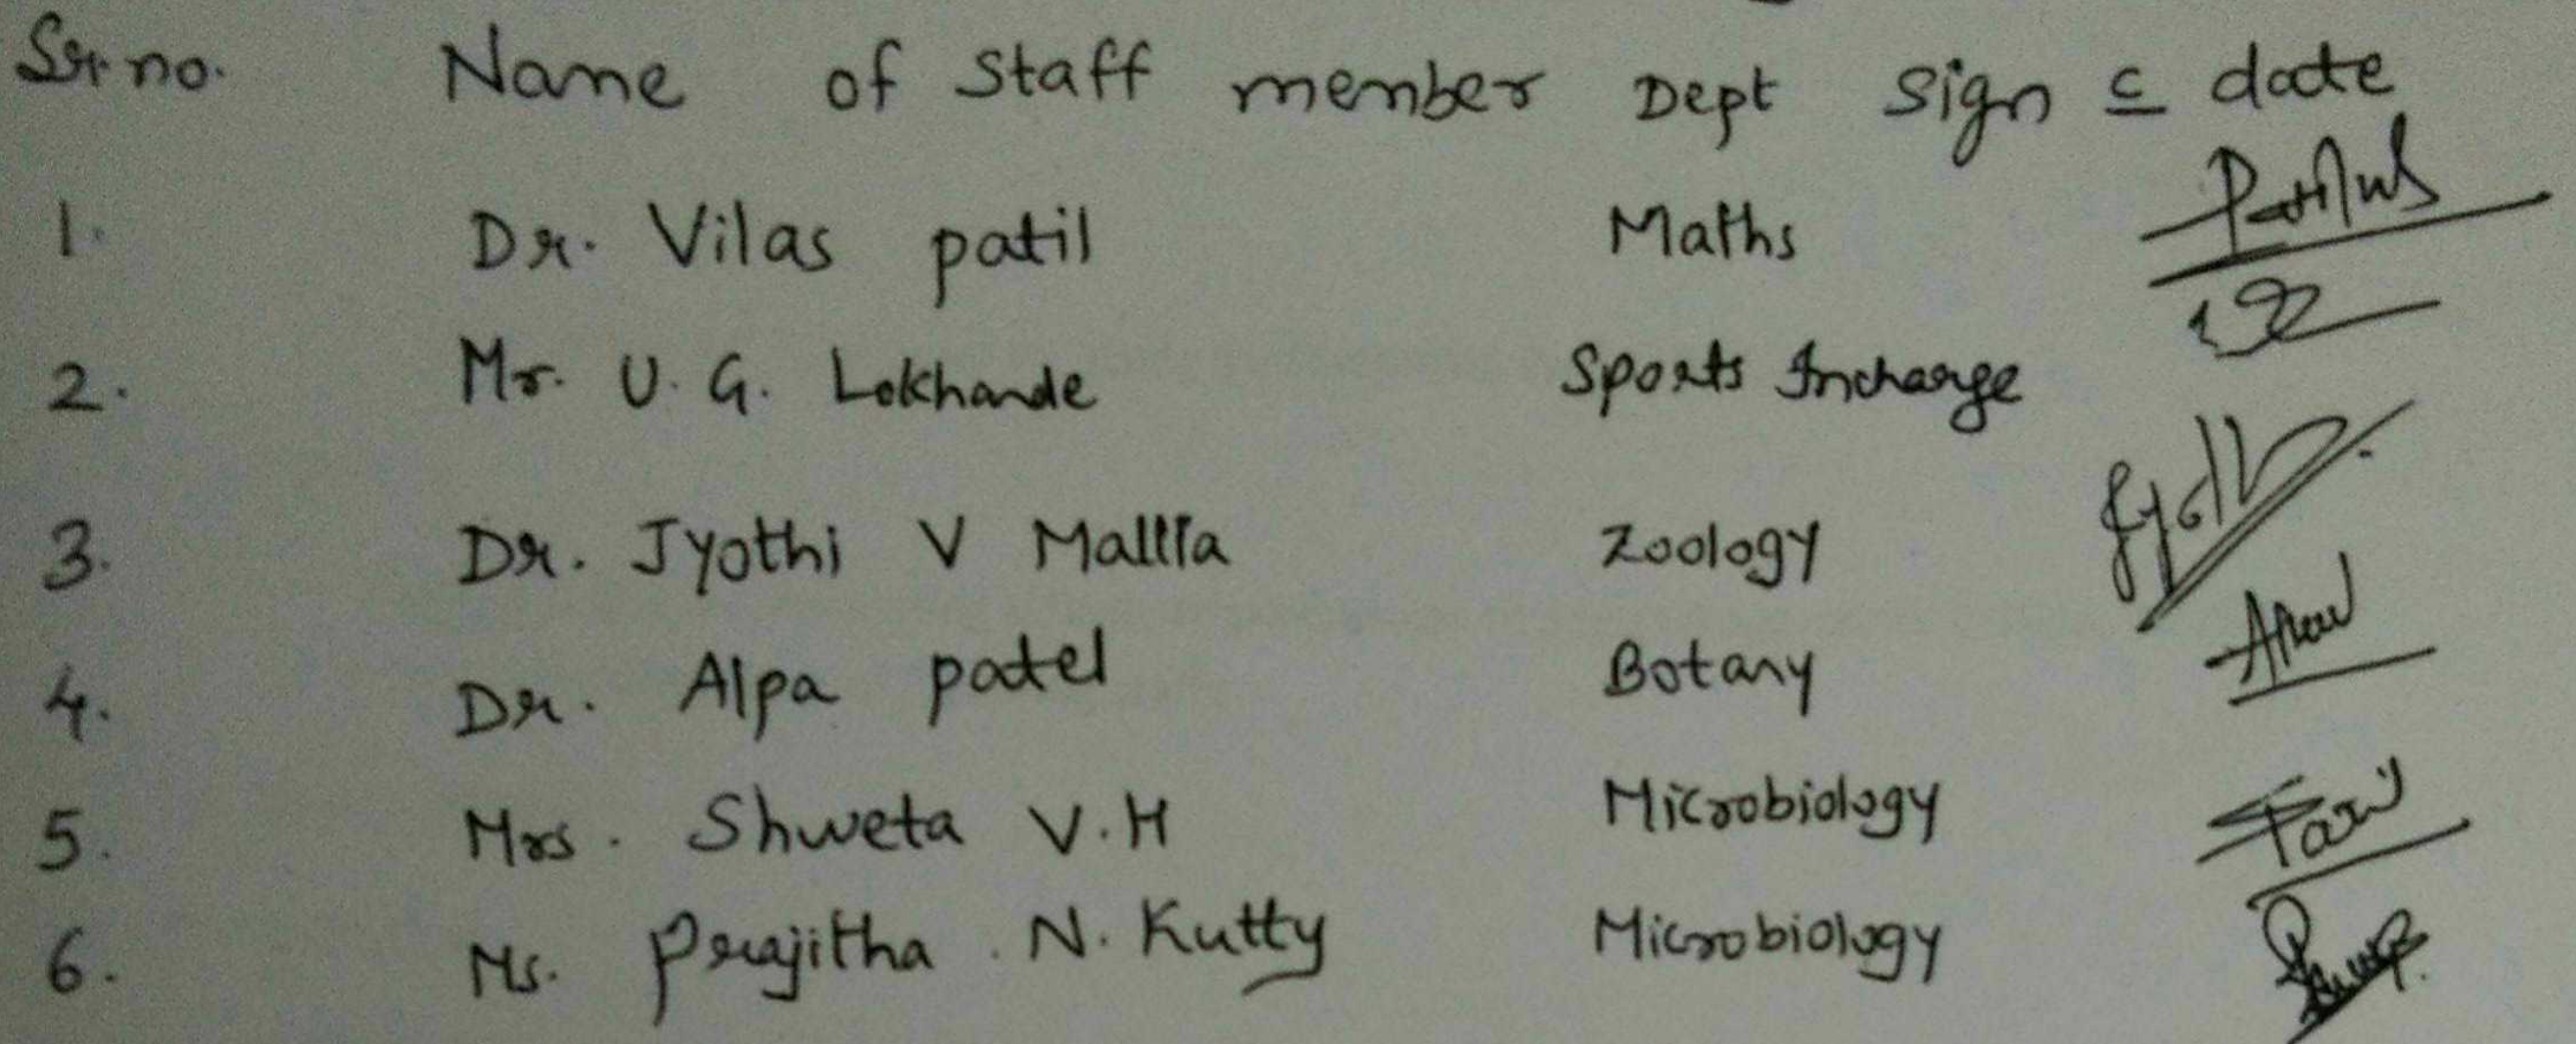 Sr. no. Name of Staff member Dept Sign c date
1. Dr. Vilas patil Maths
2. Mr. U. G. Lokhande Sports Incharge
3. Dr. Jyothi V Mallia Zoology
4. Dr. Alpa patel Botany
5. Mrs. Shweta V.H Microbiology
6. Ms. Prajitha N. Kutty Microbiology